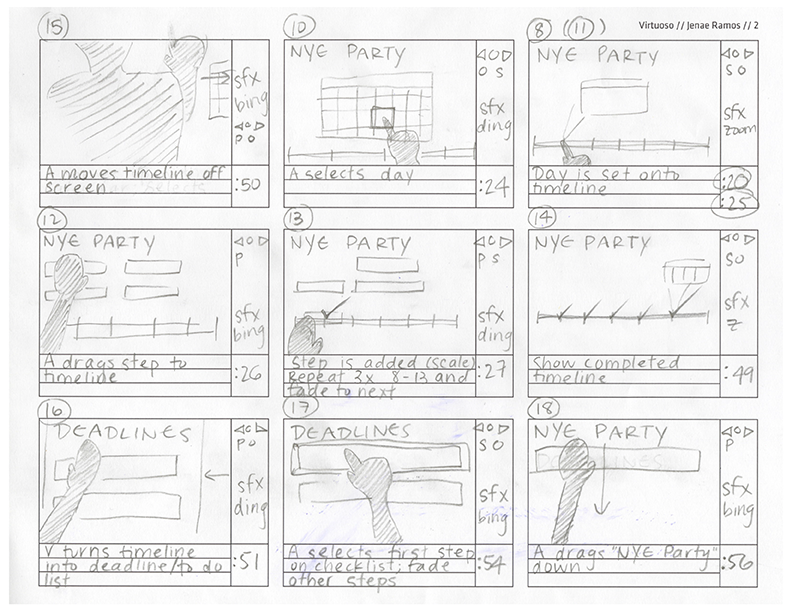 Virtuoso // Jenae Ramos // 2
15
sfx
bing
◁○▷
P O
A moves timeline off
screen
:50
10
NYE PARTY
◁○▷
O S
sfx
ding
A selects day
:24
8 (11)
NYE PARTY
◁○▷
S O
sfx
zoom
Day is set onto
timeline
:20
:25
12
NYE PARTY
◁○▷
P
sfx
bing
A drags step to
timeline
:26
13
NYE PARTY
◁○▷
P S
sfx
ding
Step is added (scale)
Repeat 3x 8-13 and
fade to next
:27
14
NYE PARTY
◁○▷
S O
sfx
Z
Show completed
timeline
:49
16
DEADLINES
◁○▷
P O
sfx
ding
V turns timeline
into deadline/to do
list
:51
17
DEADLINES
◁○▷
S O
sfx
bing
A selects first step
on checklist; fade
other steps
:54
18
NYE PARTY
DEADLINES
◁○▷
P
sfx
bing
A drags "NYE Party"
down
:56